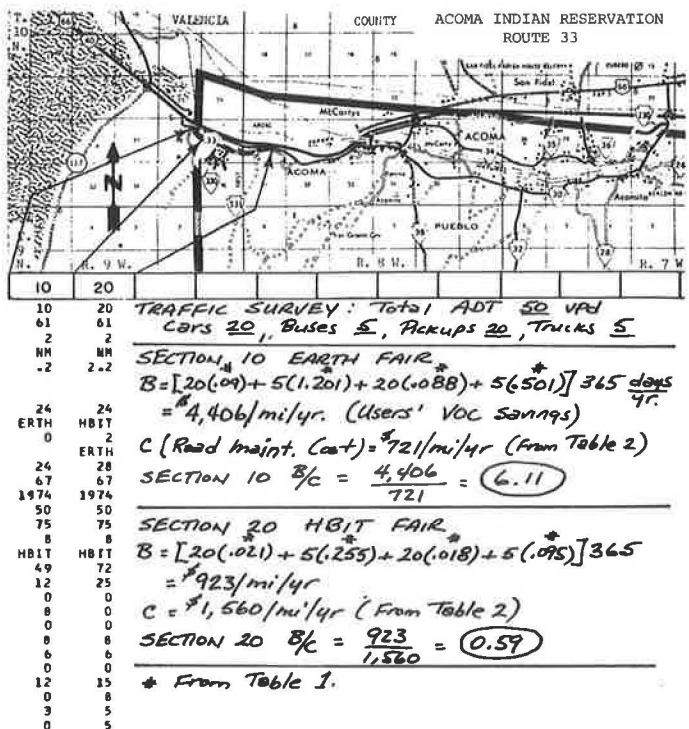 VALENCIA COUNTY
ACOMA INDIAN RESERVATION
ROUTE 33
T.
10
N.
66
San Fidel
66
McCartys
ACOMA
33
117
N
ACOMA
PUEBLO
Acomita
30
38
32
28
R. 9 W.
R. 8 W.
R. 7 W
10 20
10 20
61 61
2 2
NM NM
.2 2.2
24 24
ERTH HBIT
0 2
ERTH
24 28
67 67
1974 1974
50 50
75 75
8 8
HBIT HBIT
49 72
12 25
0 0
8 0
0 0
8 8
6 6
0 0
12 15
0 8
3 5
0 5
TRAFFIC SURVEY: Total ADT 50 vpd
Cars 20, Buses 5, Pickups 20, Trucks 5
SECTION 10 EARTH FAIR
B=[20(.09)*+5(1.201)*+20(.088)*+5(.501)*] 365 days/yr.
= $4,406/mi/yr. (Users' VOC Savings)
C (Road maint. Cost) = $721/mi/yr (From Table 2)
SECTION 10 B/C = 4,406/721 = 6.11
SECTION 20 HBIT FAIR
B = [20(.021)*+5(.255)*+20(.018)*+5(.095)*] 365
= $923/mi/yr
C = $1,560/mi/yr (From Table 2)
SECTION 20 B/C = 923/1,560 = 0.59
* From Table 1.